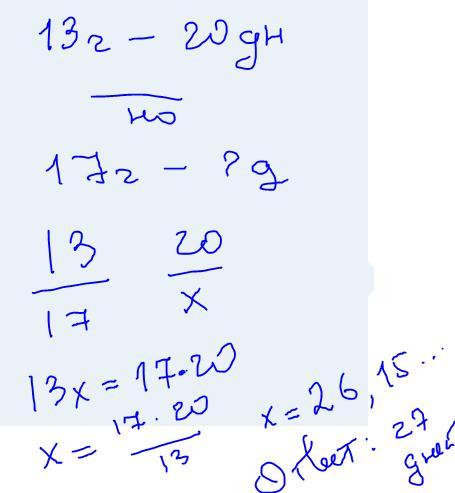 13г - 20 дн
но
17г - ? д
13/17 20/x
13x = 17·20
x = 17·20/13
x = 26,15...
Ответ: 27
дней